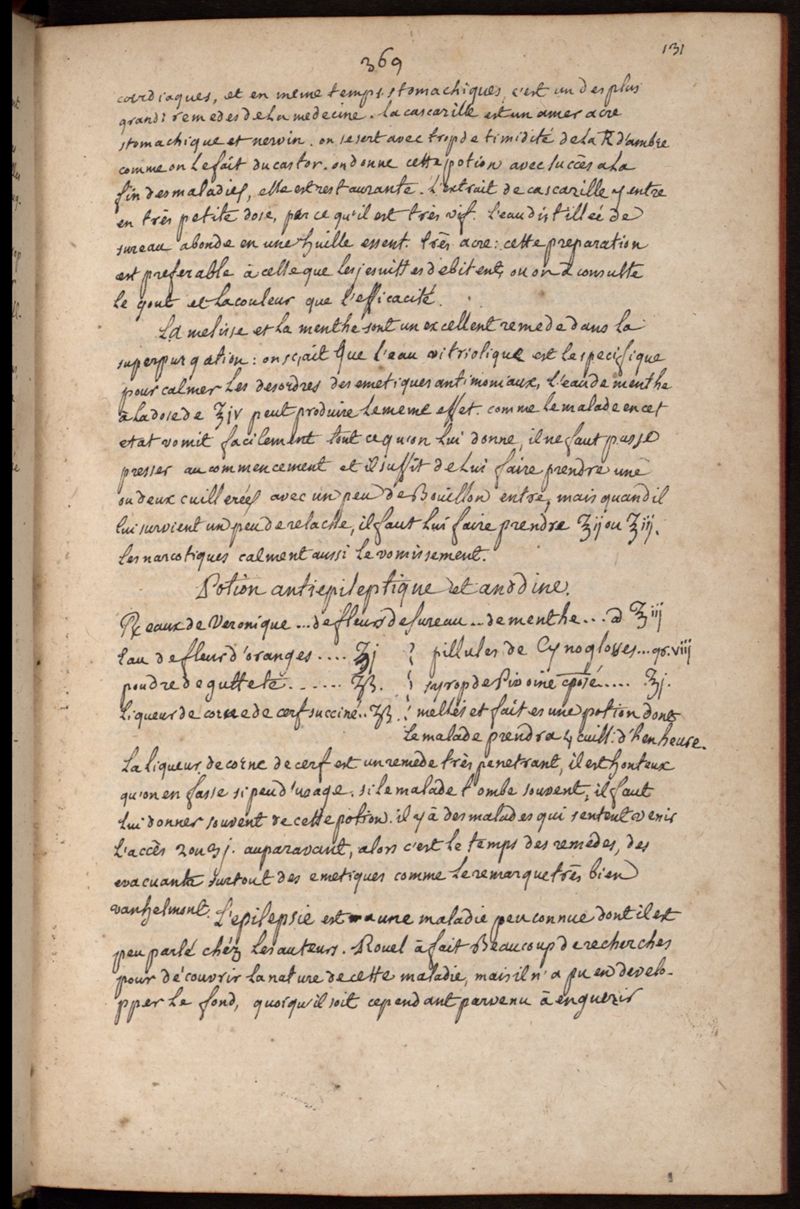 131
369
cordiaques, et en meme temps stomachiques, c'est un des plus
grands remedes de la medecine. la cascarille est un amer acre
stomachique et nervin. on se sert avec trop de timidité de la d'ambre
comme on le fait du castor. on donne cette potion avec succès a la
fin des maladies, elle est restaurante. l'extrait de cascarille y entre
en très petite dose, par ce qu'il est très vif. l'eau distillée de
sureau abonde en une huille essent. très acre: cette preparation
est preferable à celle que les jesuittes debitent, ou on a consulté
le gout et la couleur que l'efficacité.
La melisse et la menthe sont un excellent remede dans la
superpurgation: on sçait que l'eau vitriolique est le specifique
pour calmer les desordres des emetiques antimoniaux, l'eau de menthe
a la dose de ℥jv peut produire le meme effet. comme le malade en cet
etat vomit facilement tout ce qu'on lui donne, il ne faut pas le
presser au commencement et il suffit de lui faire prendre une
ou deux cuillerées avec un peu de Bouillon entre, mais quand il
lui survient un peu de relache, il faut lui faire prendre ℥ij ou ℥iij.
les narcotiques calment aussi le vomissement.
Potion antiepileptique et anodine.
℞ eaux de Veronique ... de fleurs de sureau ... de menthe ... a ℥iij
eau de fleur d'oranges .... ℥j pillules de Cynogloses ... gr. viij
poudre de guttete ....... syrop de Pivoine cposé ..... ℥j.
liqueur de corne de cerf succiné .. mellés et faites une potion dont
le malade prendra cuill: d'h en heure.
La liqueur de corne de cerf est un remede très penetrant, il est honteux
qu'on en fasse si peu d'usage. si le malade tombe souvent, il faut
lui donner souvent de cette potion. il y à des malades qui sentent venir
l'accès 2 ou 3 j. auparavant, alors c'est le temps des remedes, des
evacuants surtout des emetiques comme le remarque très bien
vanhelmont. L'epilepsie est une maladie peu connue dont il est
peu parlé chéz les auteurs. Rouel à fait Beaucoup de recherches
pour découvrir la nature de cette maladie, mais il n'a pu en develo-
pper le fond, quoiqu'il soit cependant parvenu à en guerir